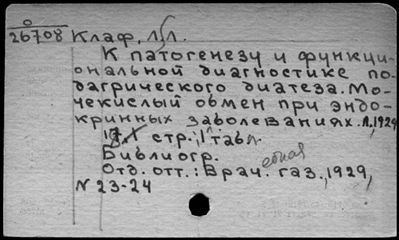 26708 Клаф, Л.Л.
К патогенезу и функци-
ональной диагностике по-
дагрического диатеза. Мо-
чекислый обмен при эндо-
кринных заболеваниях. Л, 1929
17 стр.; 1 табл.
Библиогр.
Отд. отт.: Врач. газ., 1929,
N 23-24